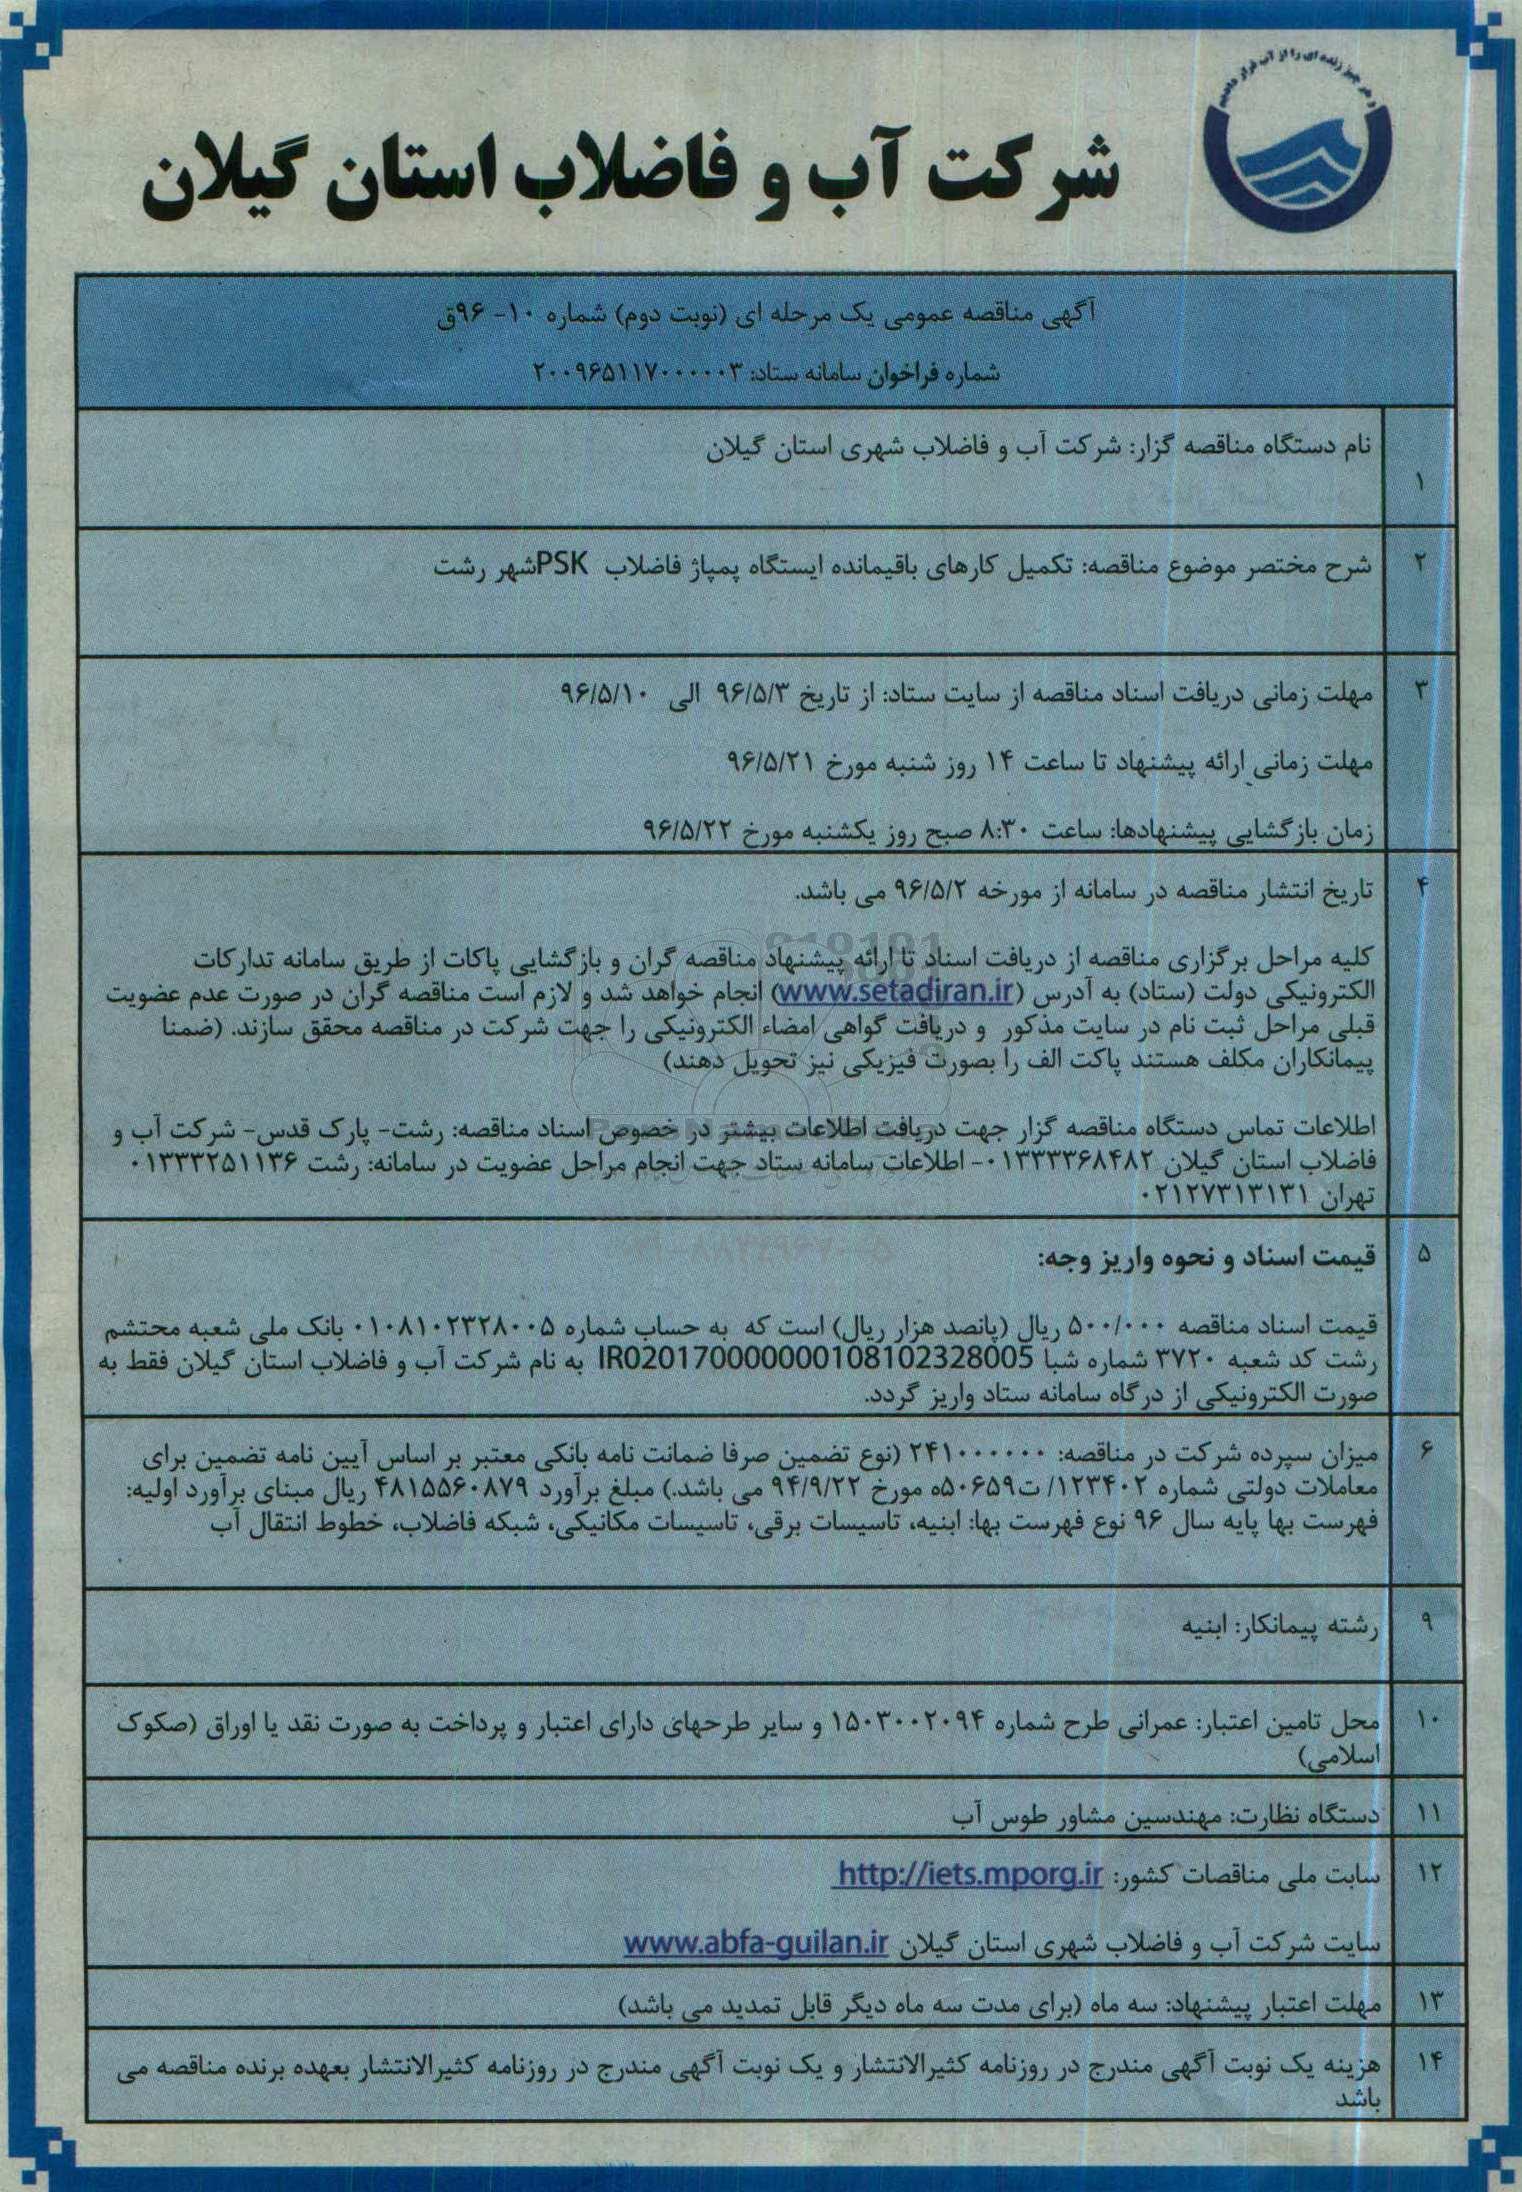 و هر چیز زنده ای را از آب قرار دادیم
شرکت آب و فاضلاب استان گیلان
آگهی مناقصه عمومی یک مرحله ای (نوبت دوم) شماره ۱۰- ۹۶ق
شماره فراخوان سامانه ستاد: ۲۰۰۹۶۵۱۱۷۰۰۰۰۰۳
۱ نام دستگاه مناقصه گزار: شرکت آب و فاضلاب شهری استان گیلان
۲ شرح مختصر موضوع مناقصه: تکمیل کارهای باقیمانده ایستگاه پمپاژ فاضلاب PSKشهر رشت
۳ مهلت زمانی دریافت اسناد مناقصه از سایت ستاد: از تاریخ ۹۶/۵/۳ الی ۹۶/۵/۱۰
مهلت زمانی ارائه پیشنهاد تا ساعت ۱۴ روز شنبه مورخ ۹۶/۵/۲۱
زمان بازگشایی پیشنهادها: ساعت ۸:۳۰ صبح روز یکشنبه مورخ ۹۶/۵/۲۲
۴ تاریخ انتشار مناقصه در سامانه از مورخه ۹۶/۵/۲ می باشد.
کلیه مراحل برگزاری مناقصه از دریافت اسناد تا ارائه پیشنهاد مناقصه گران و بازگشایی پاکات از طریق سامانه تدارکات
الکترونیکی دولت (ستاد) به آدرس (www.setadiran.ir) انجام خواهد شد و لازم است مناقصه گران در صورت عدم عضویت
قبلی مراحل ثبت نام در سایت مذکور و دریافت گواهی امضاء الکترونیکی را جهت شرکت در مناقصه محقق سازند. (ضمنا
پیمانکاران مکلف هستند پاکت الف را بصورت فیزیکی نیز تحویل دهند)
اطلاعات تماس دستگاه مناقصه گزار جهت دریافت اطلاعات بیشتر در خصوص اسناد مناقصه: رشت- پارک قدس- شرکت آب و
فاضلاب استان گیلان ۰۱۳۳۳۳۶۸۴۸۲- اطلاعات سامانه ستاد جهت انجام مراحل عضویت در سامانه: رشت ۰۱۳۳۳۲۵۱۱۳۶
تهران ۰۲۱۲۷۳۱۳۱۳۱
۵ قیمت اسناد و نحوه واریز وجه:
قیمت اسناد مناقصه ۵۰۰/۰۰۰ ریال (پانصد هزار ریال) است که به حساب شماره ۰۱۰۸۱۰۲۳۲۸۰۰۵ بانک ملی شعبه محتشم
رشت کد شعبه ۳۷۲۰ شماره شبا IR020170000000108102328005 به نام شرکت آب و فاضلاب استان گیلان فقط به
صورت الکترونیکی از درگاه سامانه ستاد واریز گردد.
۶ میزان سپرده شرکت در مناقصه: ۲۴۱۰۰۰۰۰۰ (نوع تضمین صرفا ضمانت نامه بانکی معتبر بر اساس آیین نامه تضمین برای
معاملات دولتی شماره ۱۲۳۴۰۲/ ت۵۰۶۵۹ه مورخ ۹۴/۹/۲۲ می باشد.) مبلغ برآورد ۴۸۱۵۵۶۰۸۷۹ ریال مبنای برآورد اولیه:
فهرست بها پایه سال ۹۶ نوع فهرست بها: ابنیه، تاسیسات برقی، تاسیسات مکانیکی، شبکه فاضلاب، خطوط انتقال آب
۹ رشته پیمانکار: ابنیه
۱۰ محل تامین اعتبار: عمرانی طرح شماره ۱۵۰۳۰۰۲۰۹۴ و سایر طرحهای دارای اعتبار و پرداخت به صورت نقد یا اوراق (صکوک
اسلامی)
۱۱ دستگاه نظارت: مهندسین مشاور طوس آب
۱۲ سایت ملی مناقصات کشور: http://iets.mporg.ir
سایت شرکت آب و فاضلاب شهری استان گیلان www.abfa-guilan.ir
۱۳ مهلت اعتبار پیشنهاد: سه ماه (برای مدت سه ماه دیگر قابل تمدید می باشد)
۱۴ هزینه یک نوبت آگهی مندرج در روزنامه کثیرالانتشار و یک نوبت آگهی مندرج در روزنامه کثیرالانتشار بعهده برنده مناقصه می
باشد